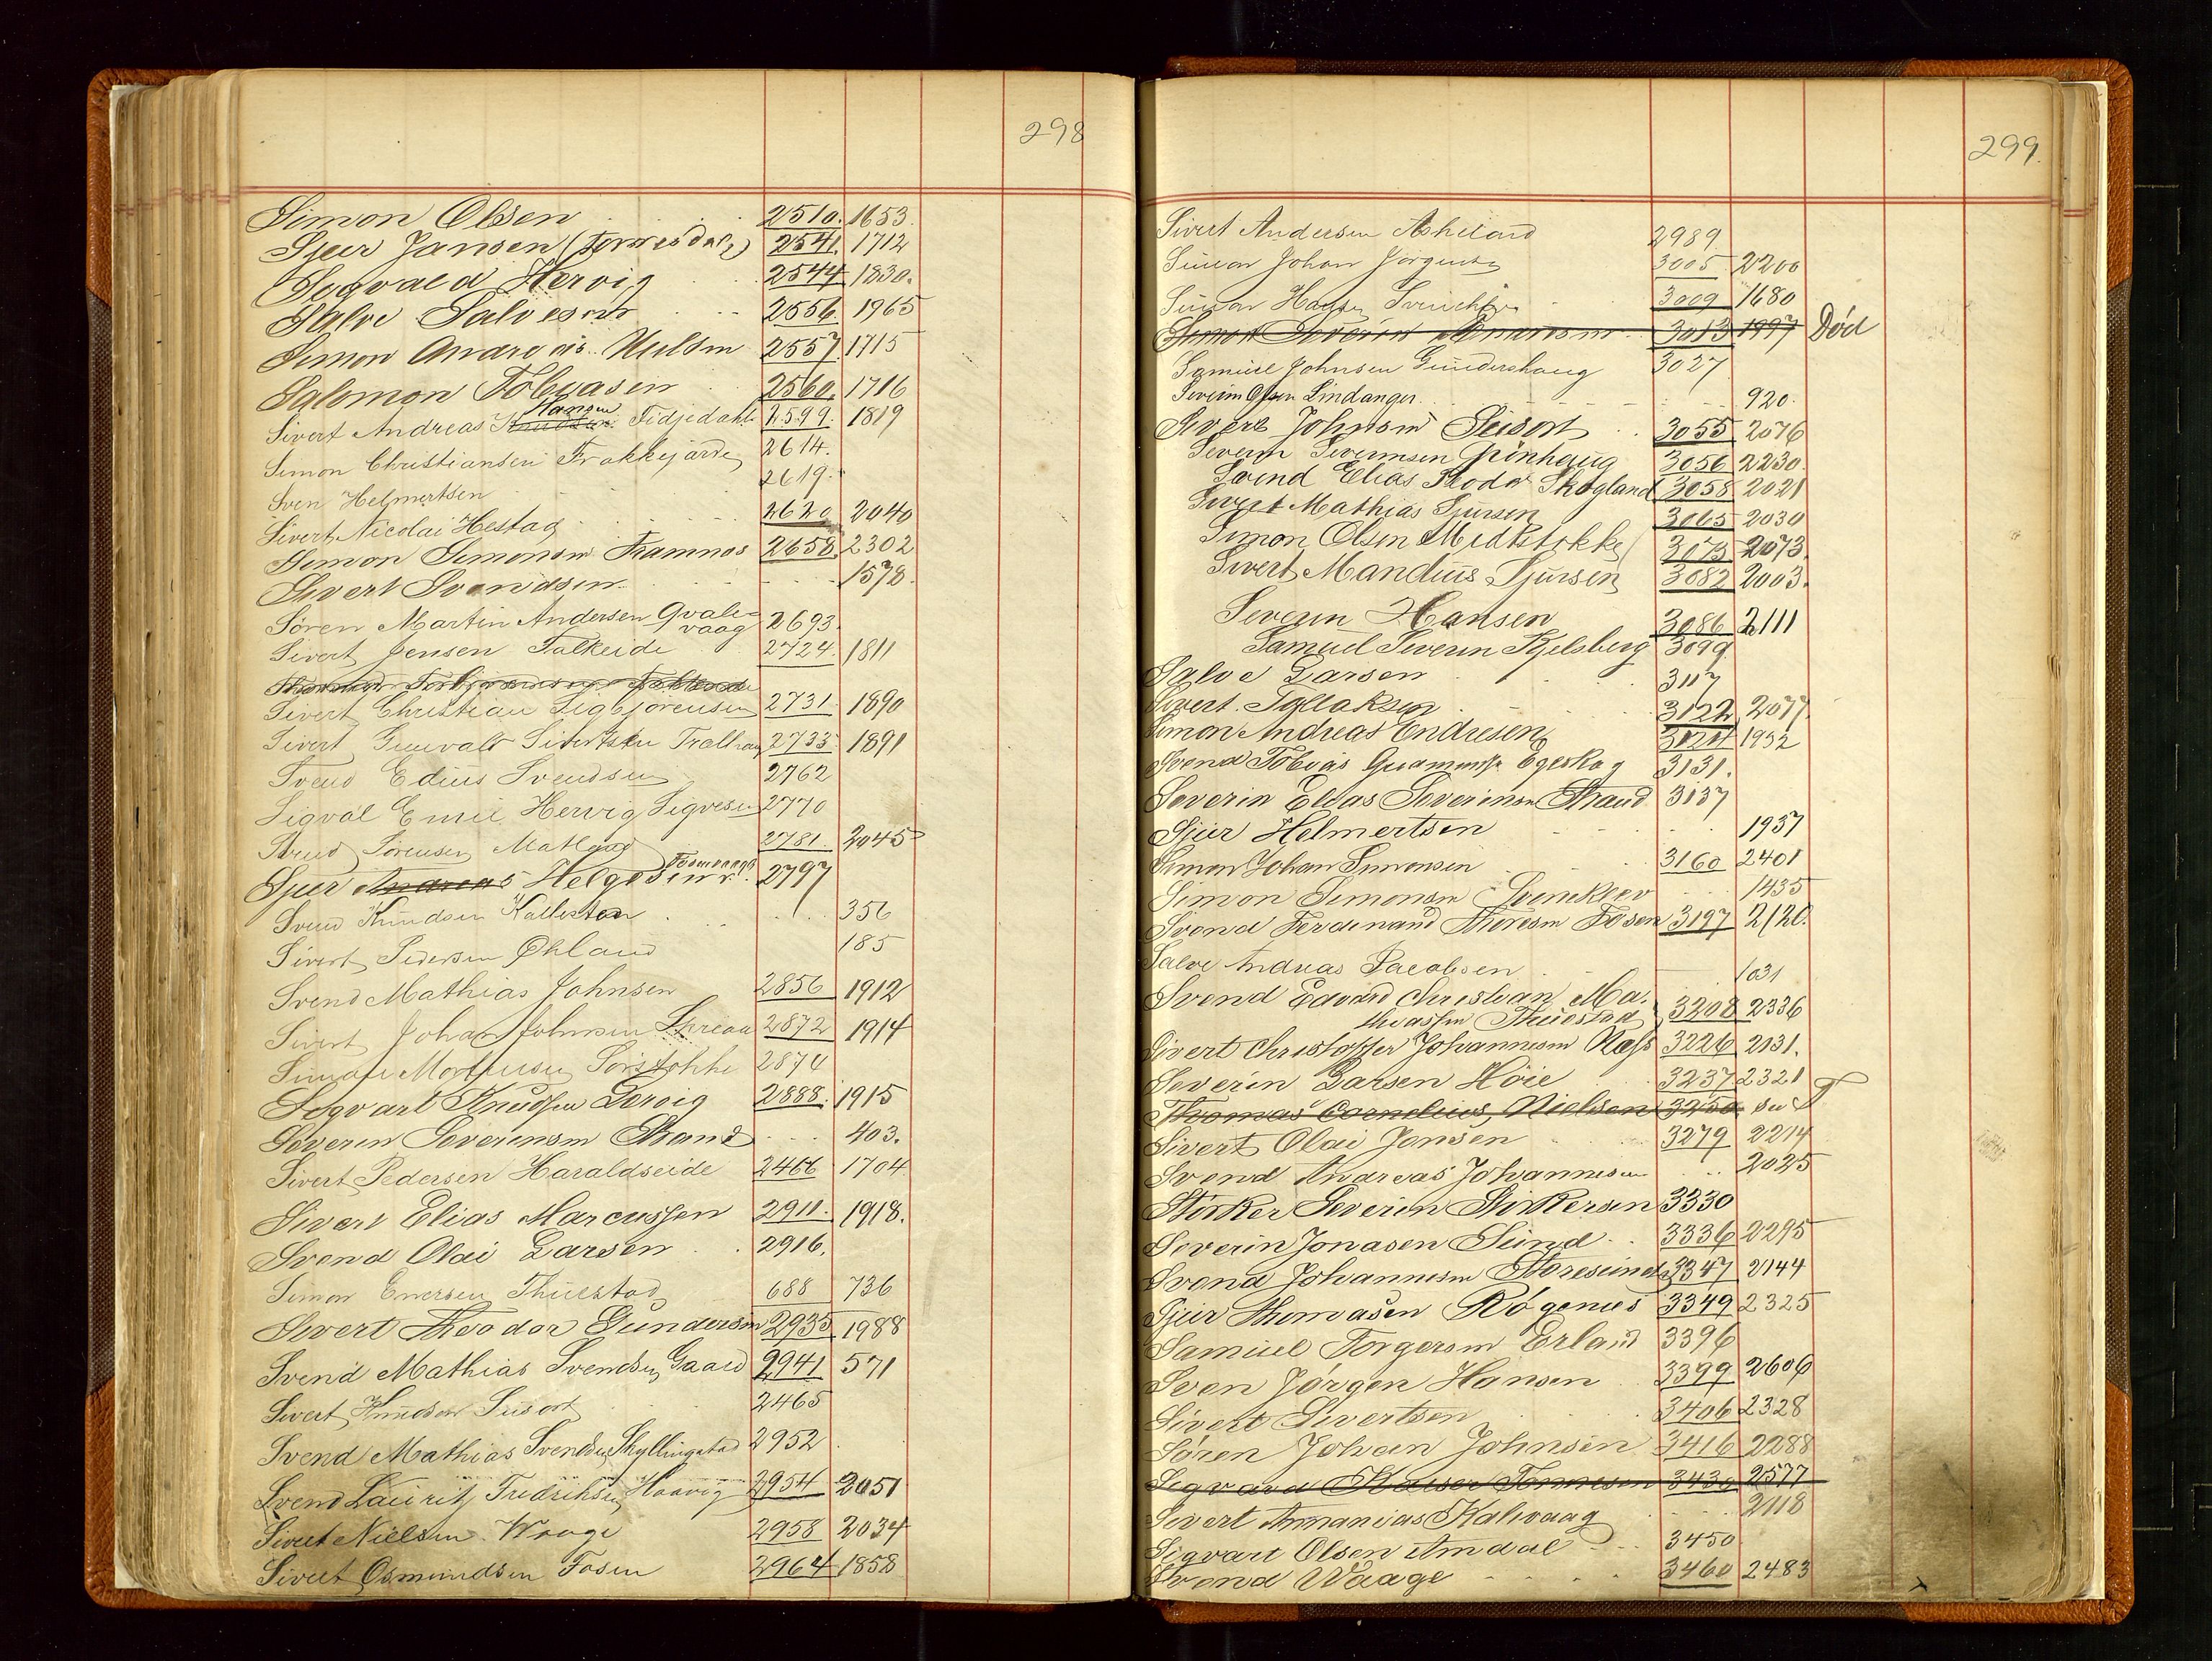 298
Simon Olsen 2510. 1653
Sjur Jansen (Torresdal) 2541. 1712
Sigvald Hervig 2544 1830.
Salve Salvesen 2556. 1965
Simon Andreas Nielsen 2557. 1715
Salomon Tobiasen 2560. 1716
Hansen
Sivert Andreas Knudsen Tidjedahl 2599. 1819
Simon Christiansen Frakkejarde 2614.
Sven Helmertsen 2619.
Sivert Nicolai Hestaq 2620 2040
Simon Simonsen Framnæs 2658. 2302
Sivert Svendsen 1578.
Søren Martin Andersen Qvale-
vaag 2693.
Sivert Jensen Falkeide 2724. 1811
Sivert Christian Sigbjørensen 2731. 1890
Sivert Gunvald Sivertsen Trælhaug 2733 1891
Svend Edius Svendsen 2762
Sigval Emil Hervig Sigvesen 2770
Svend Sørensen Matland 2781. 2045
Sjur Andreas Helgesen 2797
Svend Knudsen Kallesten 356
Sivert Pedersen Økland 185
Svend Mathias Johnsen 2856 1912
Sivert Johan Johnsen Skreaa 2872 1914
Simon Mortensen Sørstokke 2874
Sigvart Knudsen Lervig 2888. 1915
Severin Severinsen Strand 403.
Sivert Pedersen Haraldseide 2466 1704
Sivert Elias Marcussen 2911. 1918.
Svend Olai Larsen 2916.
Simon Enersen Thuestad 688 736
Sivert Theodor Gundersen 2935 1988
Svend Mathias Svendsen Gaard 2941 571
Sivert Knudsen Seisort 2465
Svend Mathias Svendsen Skyllingstad 2952
Svend Lauritz Fredriksen Haavig 2954 2051
Sivert Nielsen Waage 2958 2034
Sivert Osmundsen Fosen 2964 1858
299.
Sivert Andersen Askeland 2989
Simon Johan Jørgensen 3005 2200
Simon Hansen 3009 1680
Simon Severin 3013 1997 Død
Samuel Johnsen Gundershaug 3027
Severin Olsen Lindanger 920.
Sivert Johnsen Seisort 3055 2076
Severin Severinsen Grønhaug 3056 2230.
Svend Elias Peder Skogland 3058 2021
Sivert Mathias Sjursen 3065 2030
Simon Olsen Midtstokke 3073 2073.
Sivert Mandius Sjursen 3082 2003.
Severin Hansen 3086 2111
Samuel Severin Kjelsberg 3099
Salve Larsen 3117
Sivert Tallaksen 3122 2077.
Simon Andreas Endresen 3124 1932
Svend Tobias Gudmunds. Egeskog 3131.
Severin Elias Severinsen Strand 3137
Sjur Helmertsen 1937
Simon Johan Simonsen 3160 2401
Simon Simonsen 1435
Svend Ferdinand Thoresen Fosen 3197 2120.
Salve Andreas Jacobsen 1031
Svend Edvard Christian Ma-
thiassen Thuestad 3208 2336
Sivert Christoffer Johannesen Næss 3226 2131.
Severin Larsen Høie 3237 2321
Thomas Cornelius Nielsen 3250 se T
Sivert Olai Jansen 3279 2214
Svend Andreas Johannesen 2025
Størker Severin Størkersen 3330
Severin Jonasen Sund 3336 2295
Svend Johannesen Storesund 3347 2144
Sjur Thomasen Røgenæs 3349 2325
Samuel Torgersen Erland 3396
Sven Jørgen Hansen 3399 2606
Sivert Sivertsen 3406 2328
Søren Johan Johnsen 3416 2288
Sigvard Kaiser Tønnesen 3430 2577
Sivert Ananias Kalvaag 2118
Sigvart Olsen Amdal 3450
Svend Waage 3460 2483